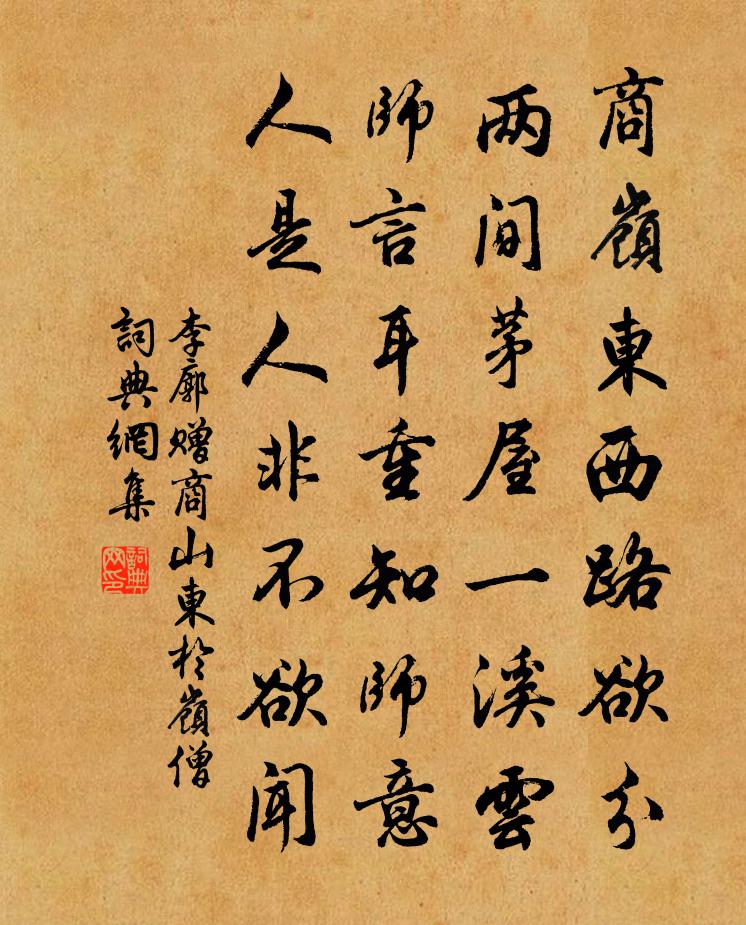 商嶺東西路欲分
两間茅屋一溪雲
師言耳重知師意
人是人非不欲聞
李廓贈商山東於嶺僧
詞典網集
詞典網印